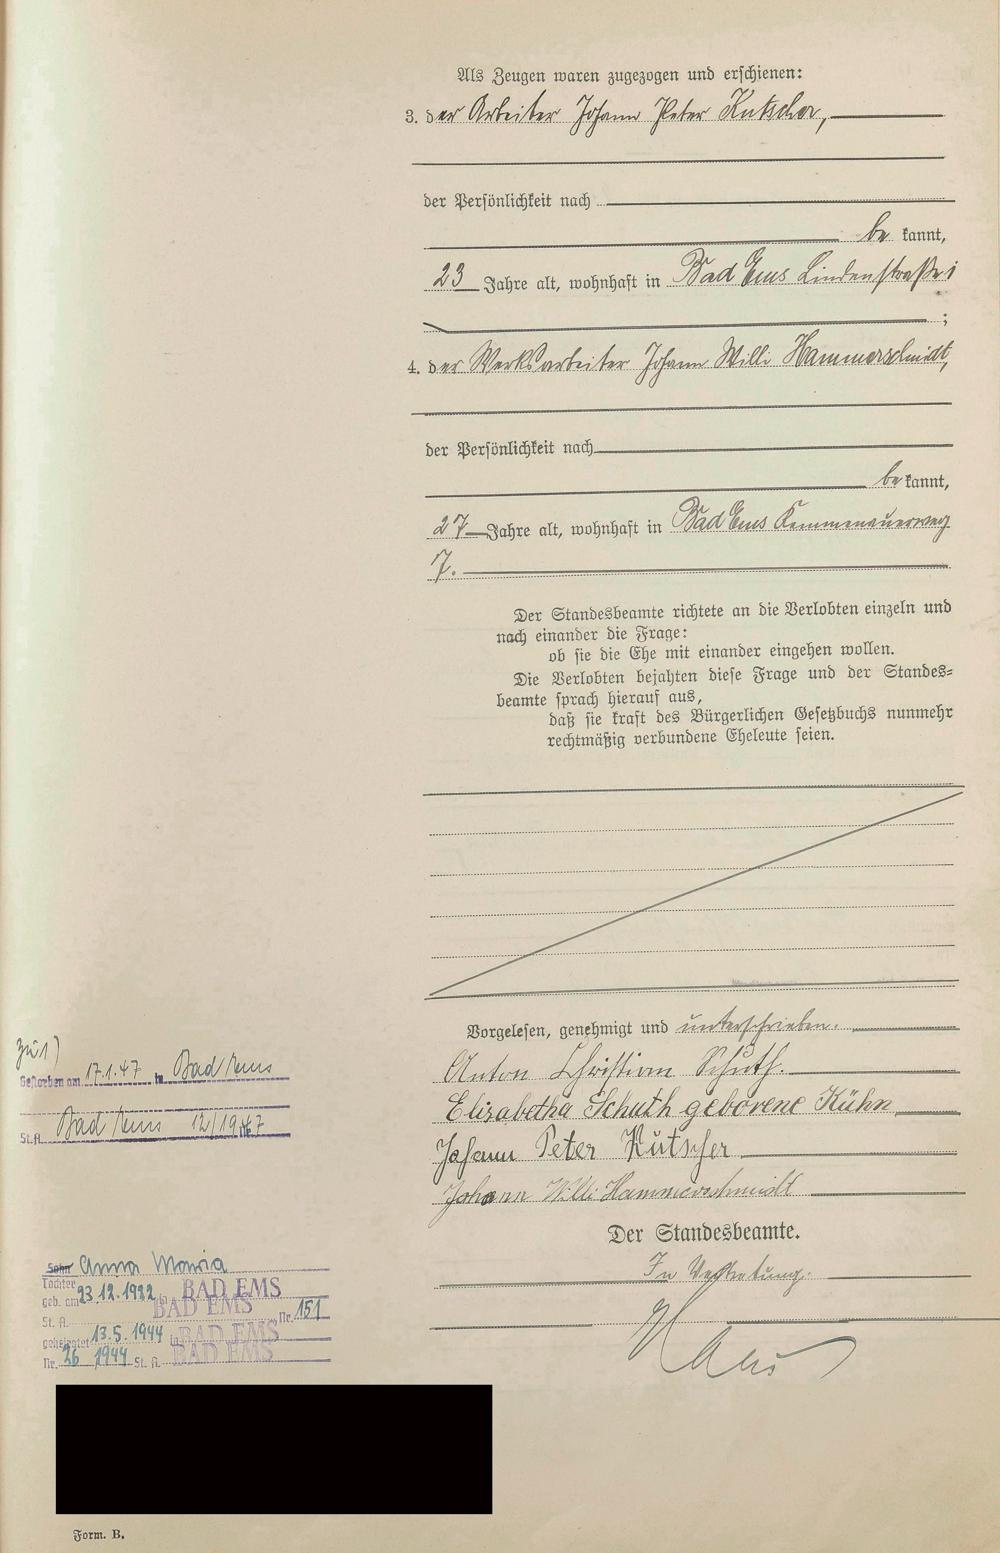 Als Zeugen waren zugezogen und erschienen:
3. der Arbeiter Johann Peter Kutscher,
der Persönlichkeit nach
be kannt,
23 Jahre alt, wohnhaft in Bad Ems Lindenstraße 1
;
4. der Werksarbeiter Johann Willi Hammerschmidt,
der Persönlichkeit nach
be kannt,
27 Jahre alt, wohnhaft in Bad Ems Kemmenauerweg
7.
Der Standesbeamte richtete an die Verlobten einzeln und
nach einander die Frage:
ob sie die Ehe mit einander eingehen wollen.
Die Verlobten bejahten diese Frage und der Standes-
beamte sprach hierauf aus,
daß sie kraft des Bürgerlichen Gesetzbuchs nunmehr
rechtmäßig verbundene Eheleute seien.
Vorgelesen, genehmigt und unterschrieben.
Anton Christian Schuth.
Elisabetha Schuth geborene Kühn
Johann Peter Kutscher
Johann Willi Hammerschmidt
Der Standesbeamte.
In Vertretung.
zu 1)
Gestorben am 17.1.47 in Bad Ems
St.A. Bad Ems 12/1947
Sohn Anna Maria
Tochter
geb. am 23.12.1922 in BAD EMS
St. A. BAD EMS Nr. 151
geheiratet 13.5.1944 in BAD EMS
Nr. 26 1944 St. A. BAD EMS
Form. B.